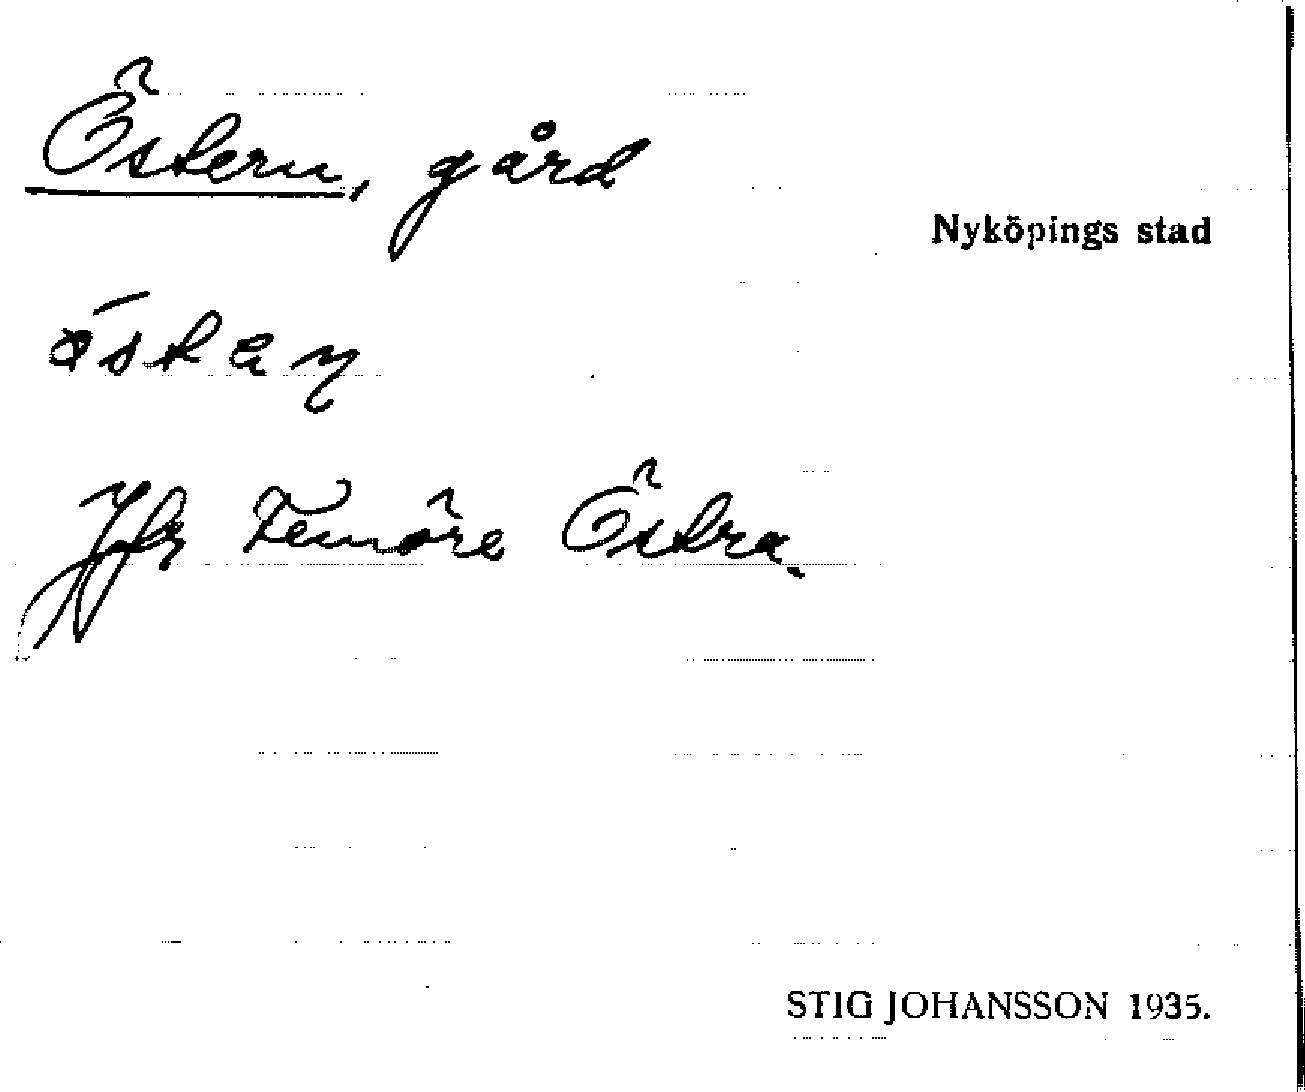 Östern, gård
Nyköpings stad
Jfr Femöre Östra.
STIG JOHANSSON 1935.